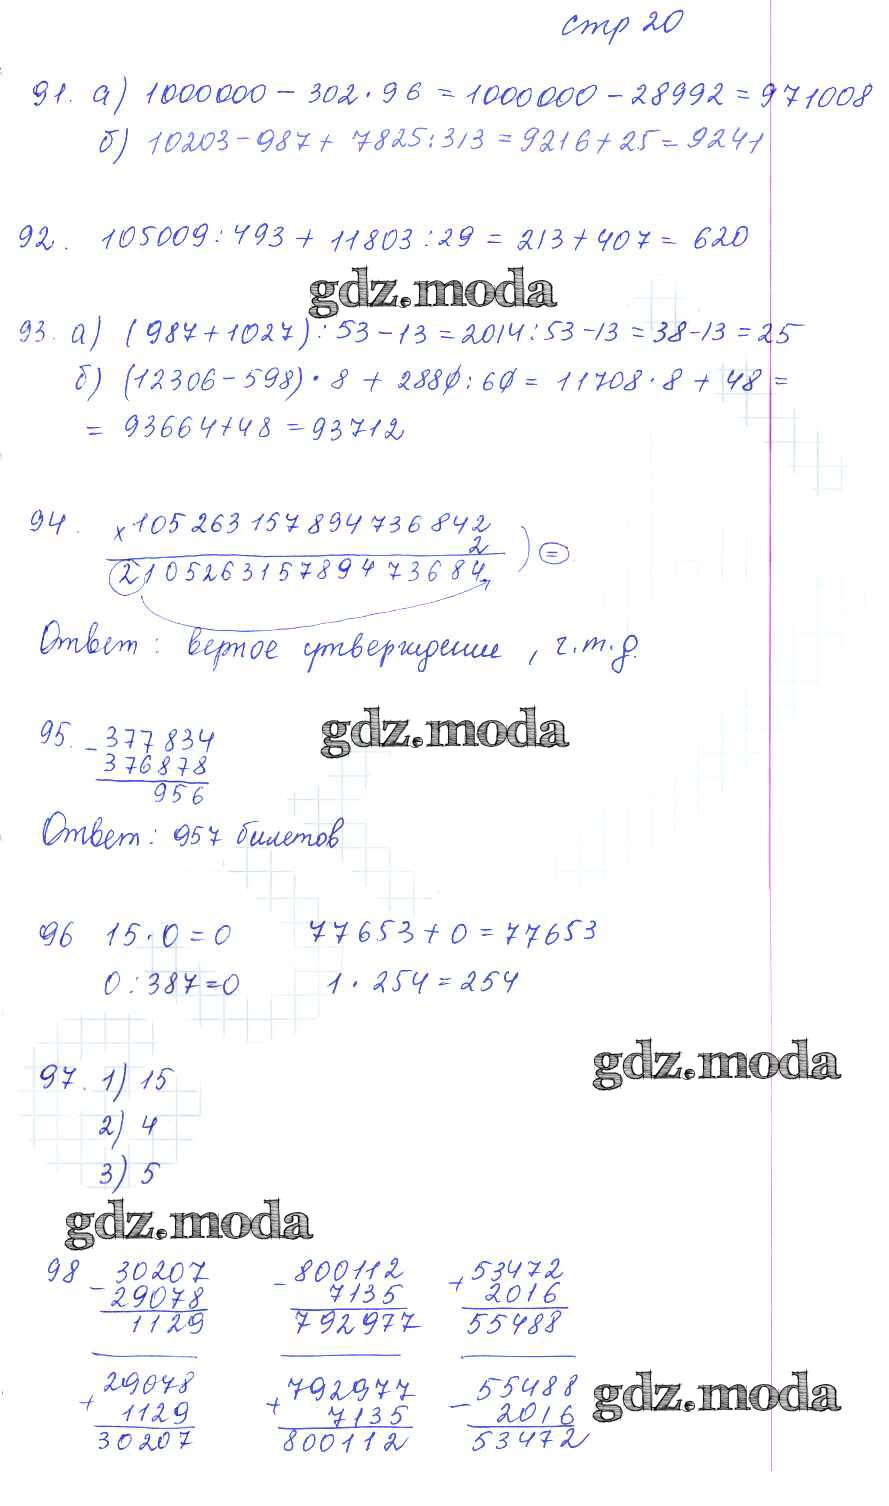 стр 20
91. а) 1000000 - 302 · 96 = 1000000 - 28992 = 971008
б) 10203 - 987 + 7825 : 313 = 9216 + 25 = 9241
92. 105009 : 493 + 11803 : 29 = 213 + 407 = 620
gdz.moda
93. а) (987 + 1027) : 53 - 13 = 2014 : 53 - 13 = 38 - 13 = 25
б) (12306 - 598) · 8 + 2880 : 60 = 11708 · 8 + 48 =
= 93664 + 48 = 93712
94. x 105263157894736842
2
210526315789473684 ) =
Ответ: верное утверждение, ч.т.д.
gdz.moda
95. - 377834
376878
956
Ответ: 957 билетов
96 15 · 0 = 0 77653 + 0 = 77653
0 : 387 = 0 1 · 254 = 254
gdz.moda
97. 1) 15
2) 4
3) 5
gdz.moda
98 - 30207 - 800112 + 53472
29078 7135 2016
1129 792977 55488
+ 29078 + 792977 - 55488
gdz.moda
1129 7135 2016
30207 800112 53472